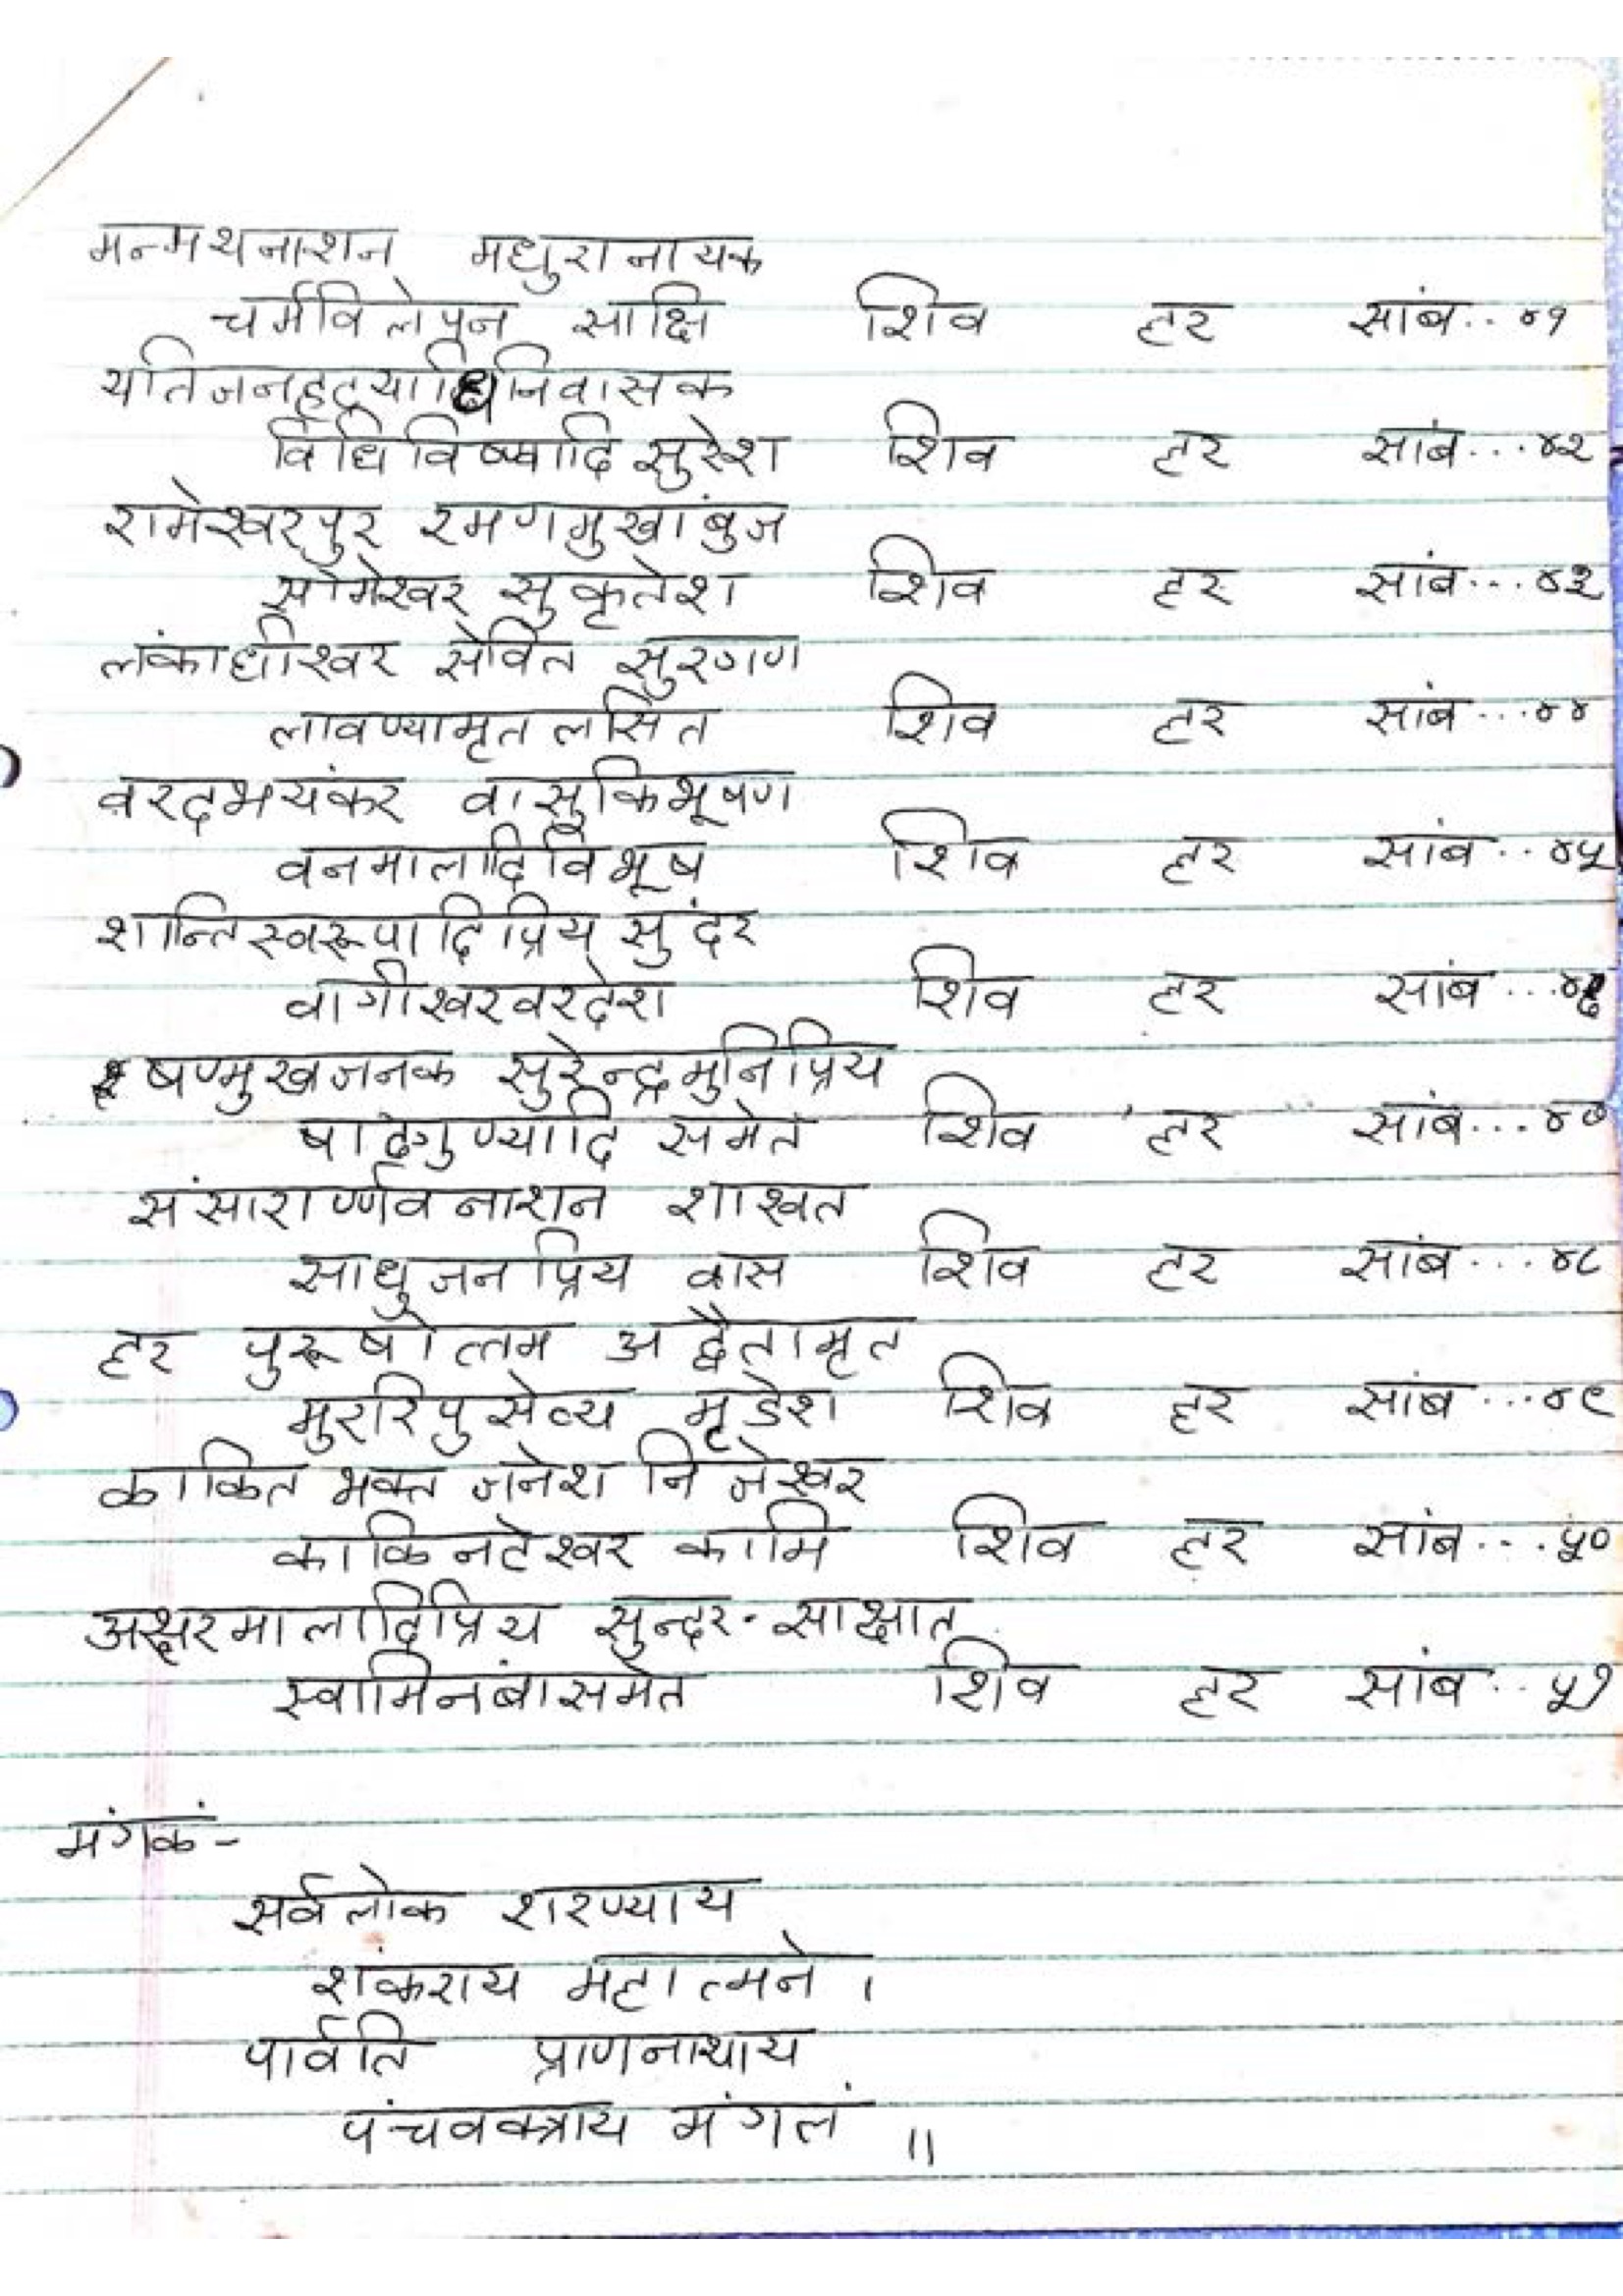 मन्मथनाशन मधुरानायक
चर्मविलेपन साक्षि शिव हर सांब..४१
यतिजनहृदयाधिनिवासक
विधिविष्ण्वादि सुरेश शिव हर सांब...४२
रामेश्वरपुर रमणमुखांबुज
सोमेश्वर सुकृतेश शिव हर सांब...४३
लंकाधीश्वर सेवित सुरगण
लावण्यामृत लसित शिव हर सांब...४४
वरदभयंकर वासुकिभूषण
वनमालादिविभूष शिव हर सांब..४५
शान्तिस्वरूपादिप्रिय सुंदर
वागीश्वरवरदेश शिव हर सांब...४६
षण्मुखजनक सुरेन्द्रमुनिप्रिय
षाढगुण्यादि समेत शिव हर सांब...४७
संसारार्ण्णवनाशन शाश्वत
साधुजनप्रिय वास शिव हर सांब...४८
हर पुरूषोत्तम अद्वैतामृत
मुररिपुसेव्य मृडेश शिव हर सांब...४९
ळाळित भक्त जनेश निजेश्वर
काळिनटेश्वर कामि शिव हर सांब....५०
अक्षरमालादिप्रिय सुन्दर-साक्षात
स्वामिनंबासमेत शिव हर सांब..५१
मंगळं-
सर्वलोक शरण्याय
शंकराय महात्मने ।
पार्वति प्राणनाथाय
पंचवक्त्राय मंगलं ॥